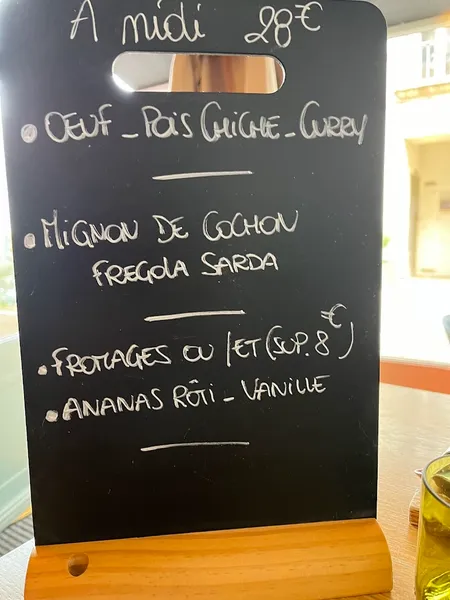 A midi 28€
• OEUF - POIS CHICHE - CURRY
• MIGNON DE COCHON
FREGOLA SARDA
• FROMAGES OU / ET (SUP. 8€)
• ANANAS RÔTI - VANILLE